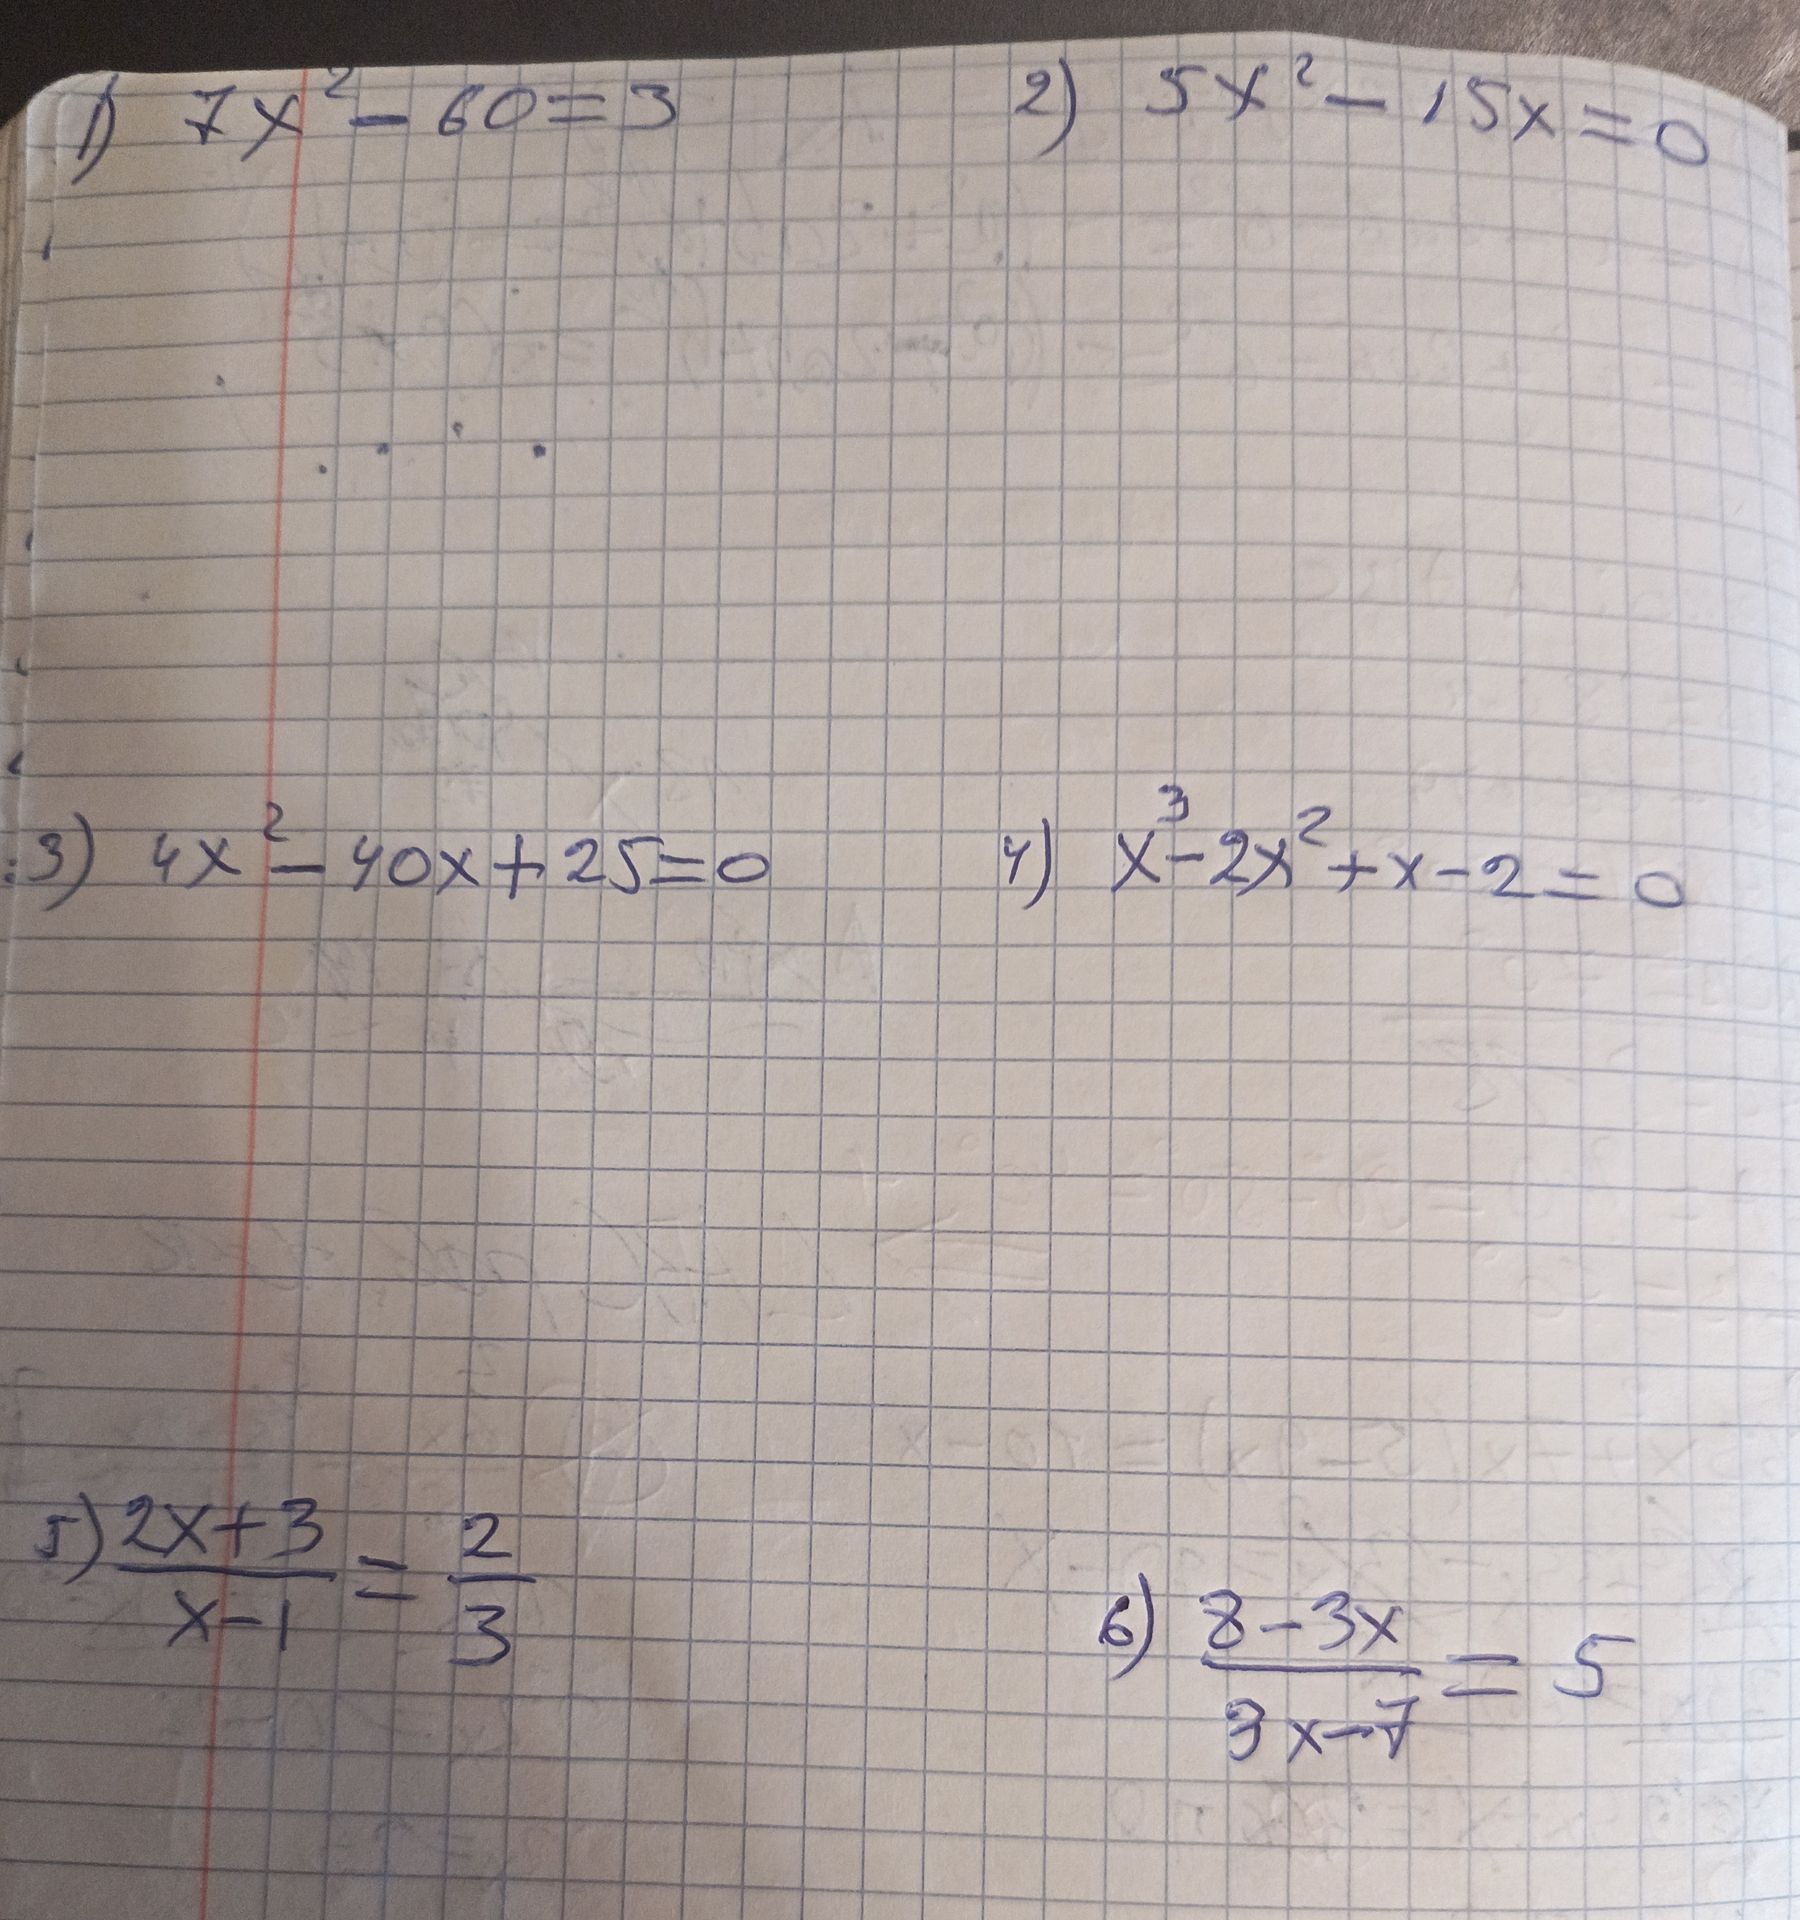 1) 7x² - 60 = 3
2) 5x² - 15x = 0
3) 4x² - 40x + 25 = 0
4) x³ - 2x² + x - 2 = 0
5) (2x+3)/(x-1) = 2/3
6) (8-3x)/(3x-7) = 5